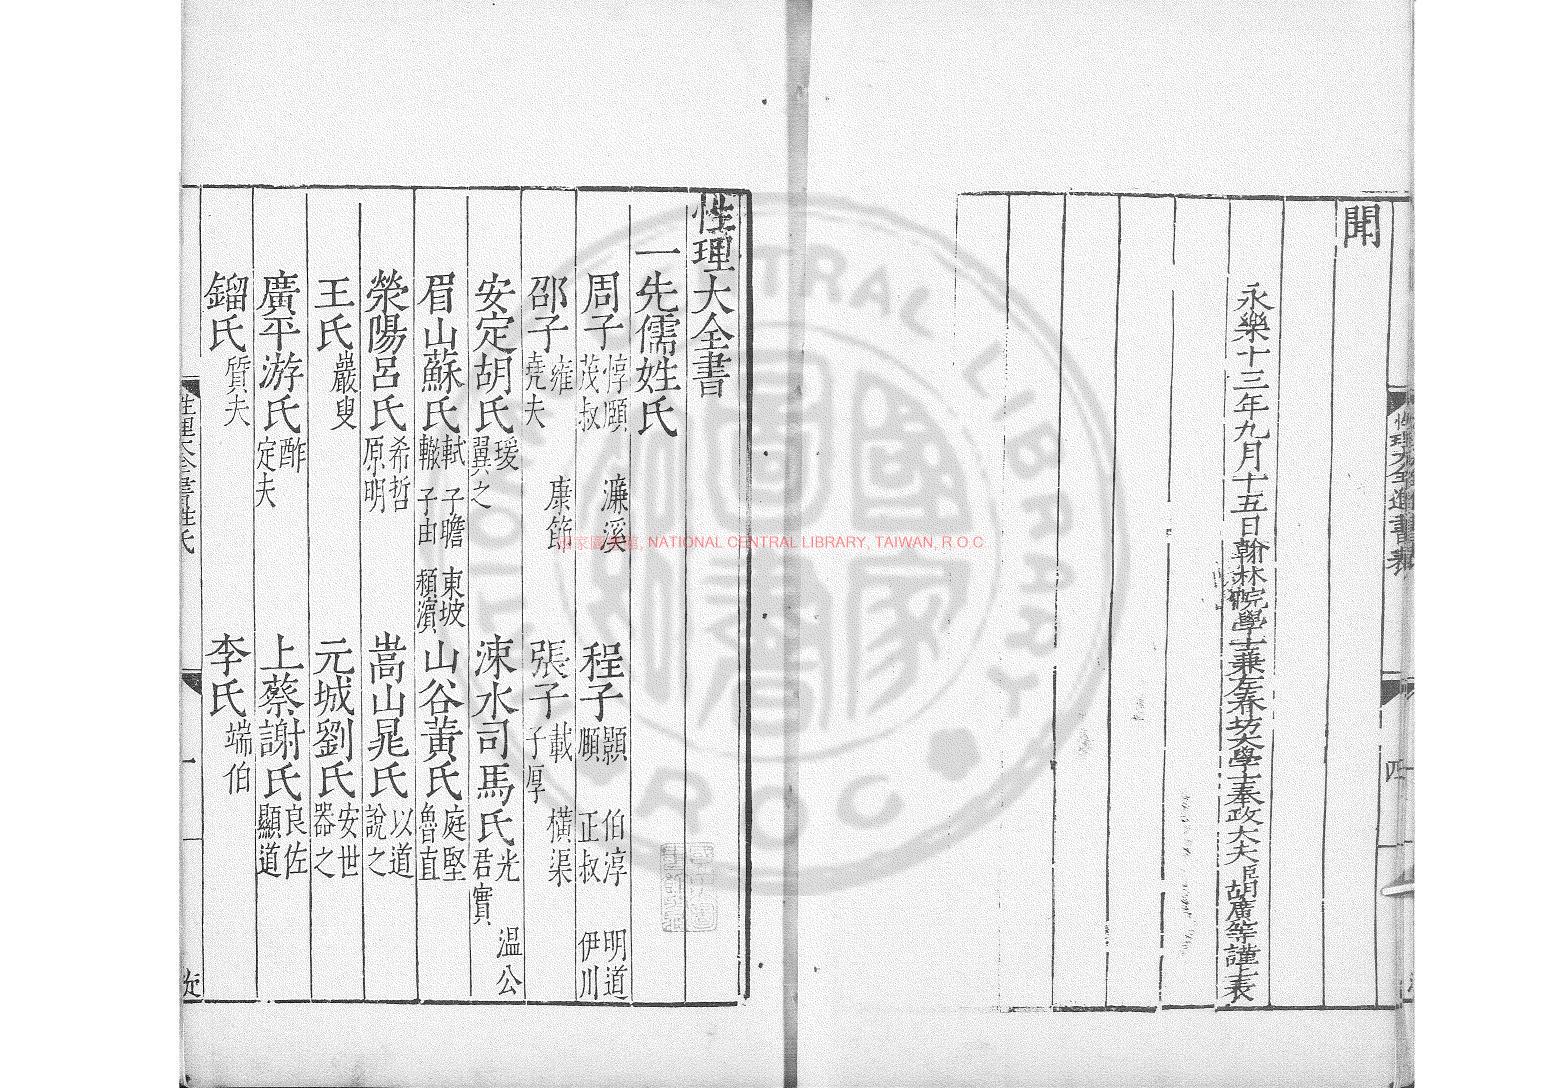 聞
永樂十三年九月十五日翰林院學士兼左春坊大學士奉政大夫臣胡廣等謹上表
性理大全進書表
四
性理大全書
一先儒姓氏
周子 惇頤 濂溪 茂叔 程子 顥 伯淳 明道 頤 正叔 伊川
邵子 雍 康節 堯夫 張子 載 橫渠 子厚
安定胡氏 瑗 翼之 涑水司馬氏 光 温公 君實
眉山蘇氏 軾 子瞻 東坡 轍 子由 頴濵 山谷黃氏 庭堅 魯直
滎陽呂氏 希哲 原明 嵩山晁氏 以道 說之
王氏 巖叟 元城劉氏 安世 器之
廣平游氏 酢 定夫 上蔡謝氏 良佐 顯道
鎦氏 質夫 李氏 端伯
性理大全書姓氏
一
國家圖書館, NATIONAL CENTRAL LIBRARY, TAIWAN, R.O.C
CENTRAL LIBRARY
R.O.C
國家圖書館